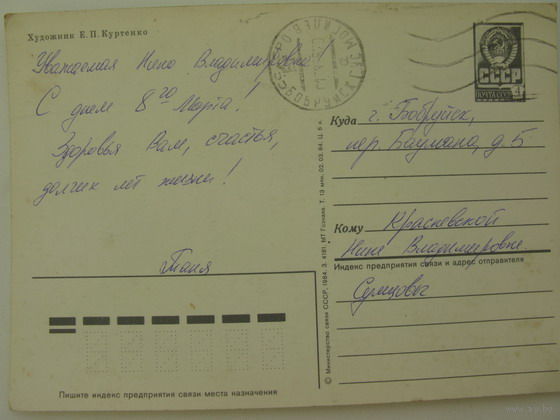 Художник Е. П. Куртенко
Уважаемая Нина Владимировна!
С днем 8го Марта!
Здоровья Вам, счастья,
долгих лет жизни!
Таня
Пишите индекс предприятия связи места назначения
© Министерство связи СССР, 1984. З. 4181. МТ Гознака. Т. 13 млн. 02.03.84. Ц. 5 к.
ПОЧТА СССР
4
Куда г. Бобруйск,
пер. Баумана, д. 5
Кому Красневской
Нине Владимировне
Индекс предприятия связи и адрес отправителя
Сумцовы